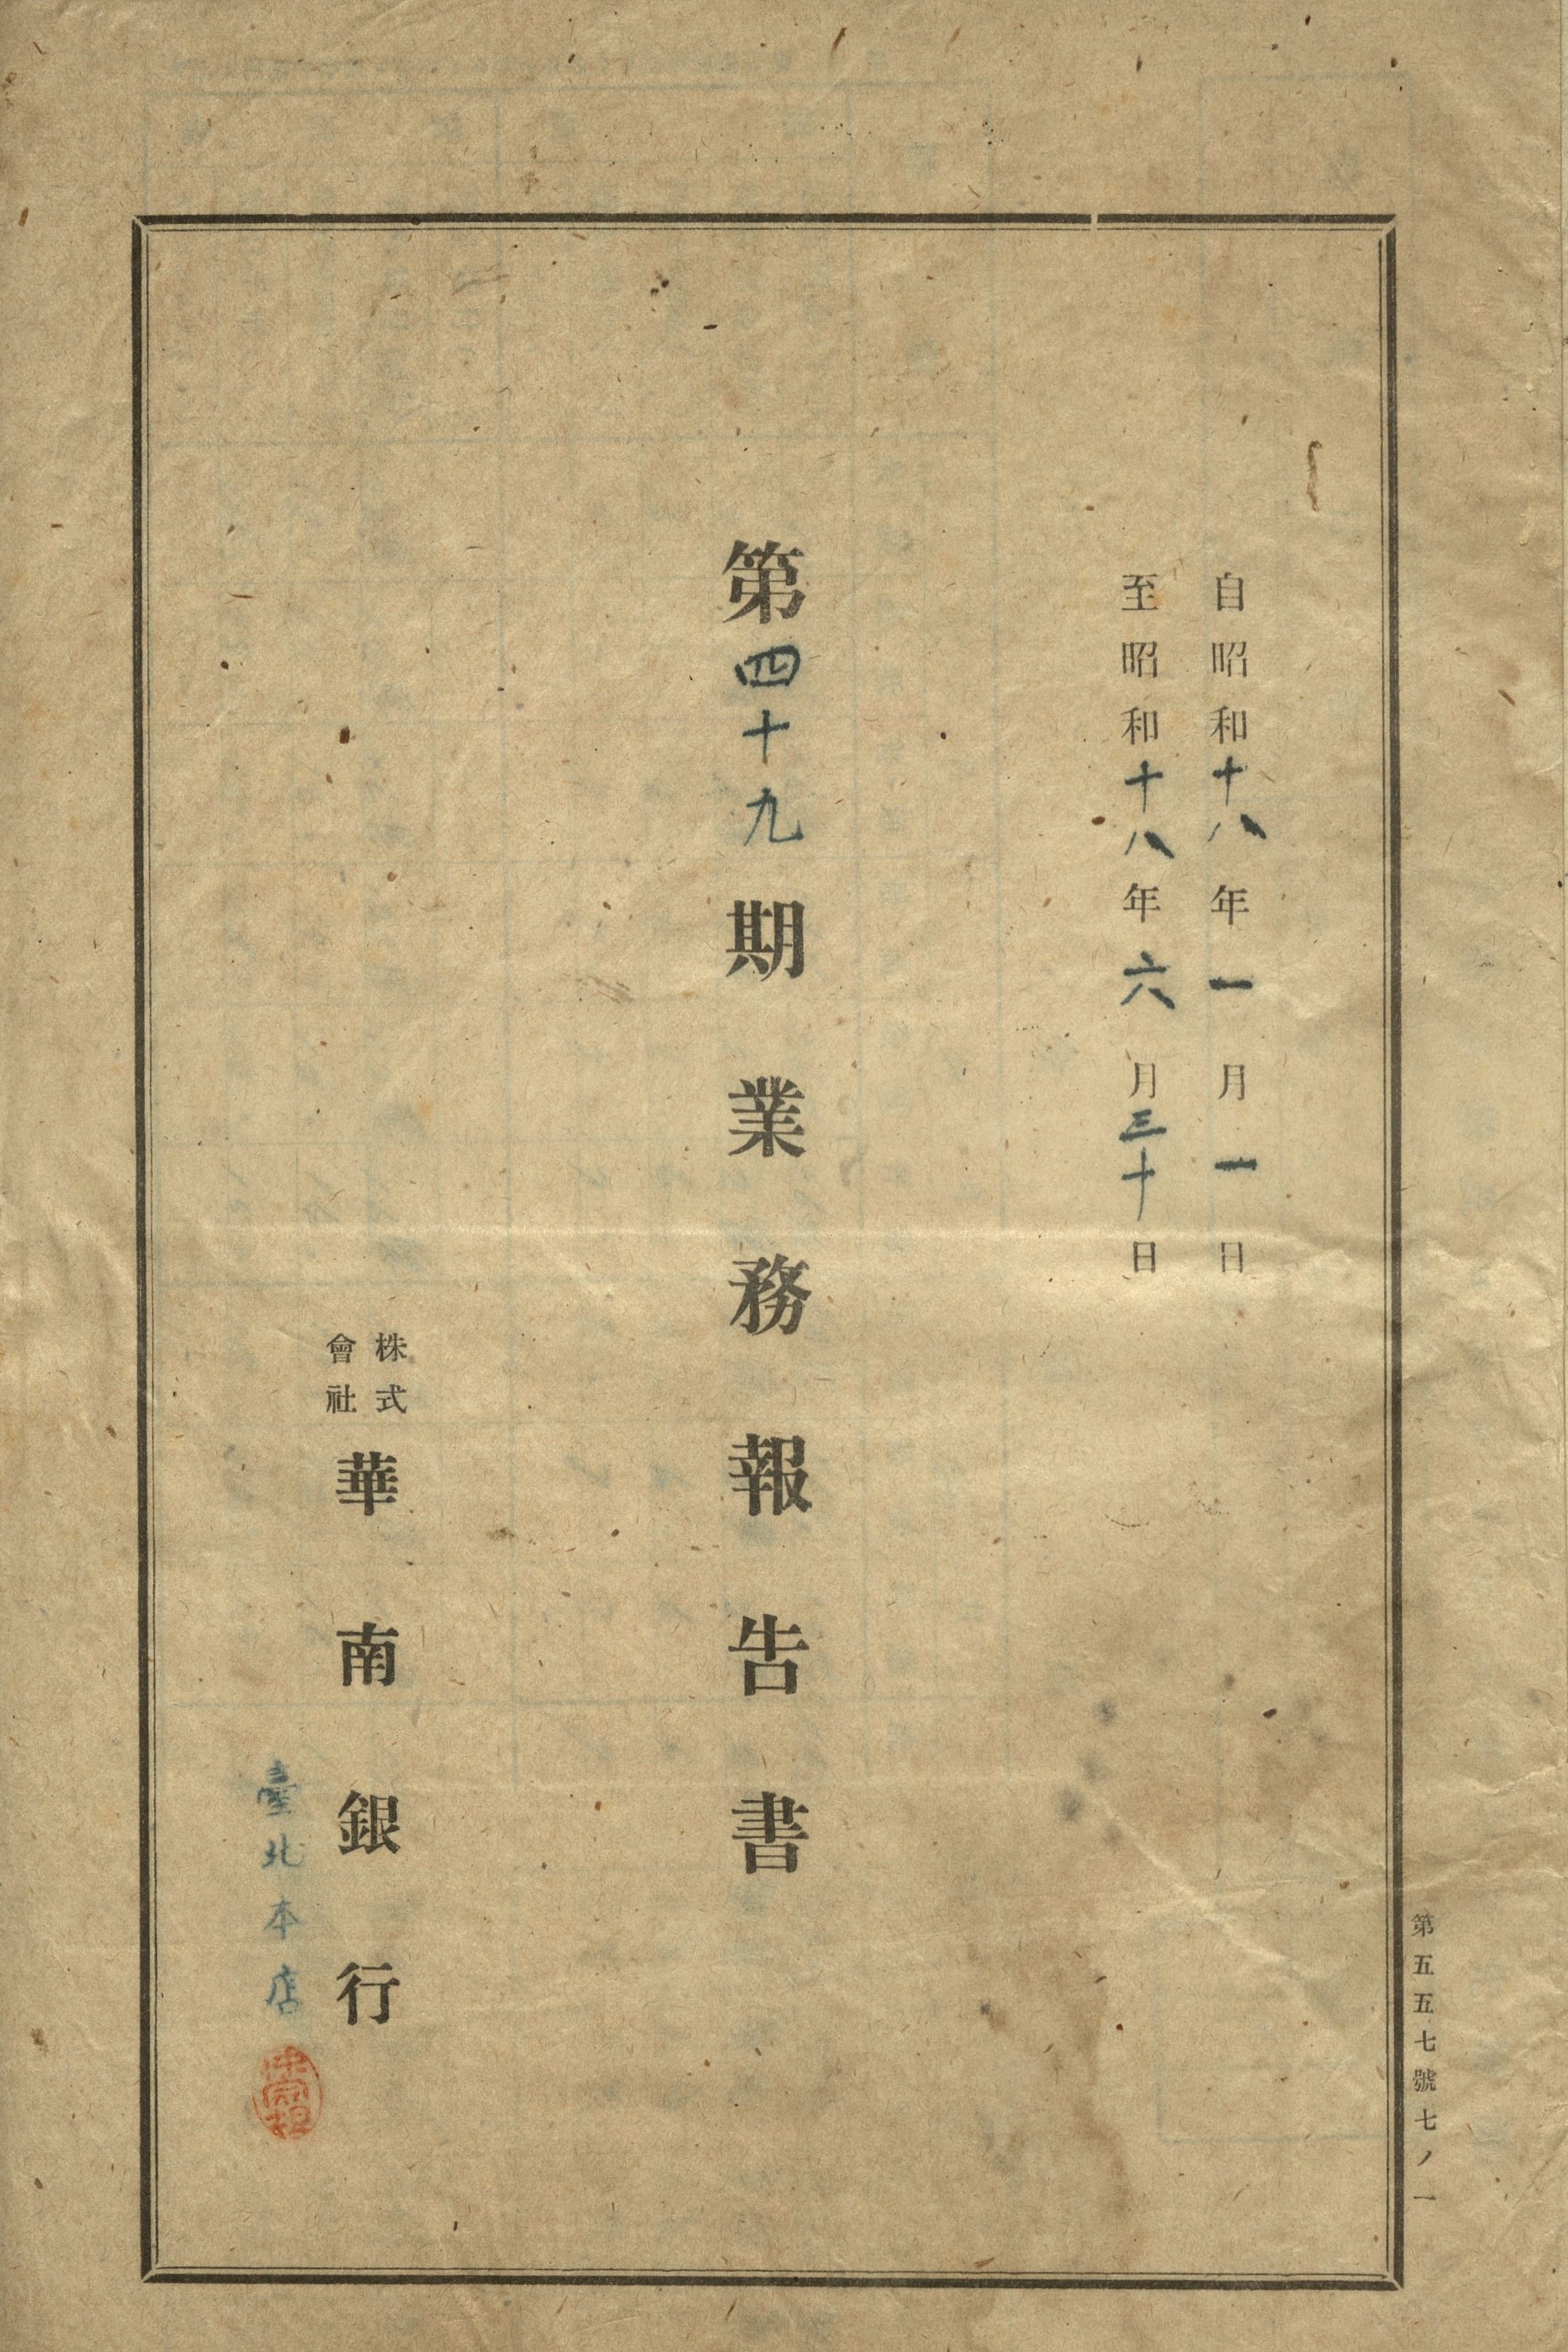 自昭和十八年一月一日
至昭和十八年六月三十日
第四十九期業務報告書
株式
會社
華南銀行
臺北本店
第五五七號七ノ一